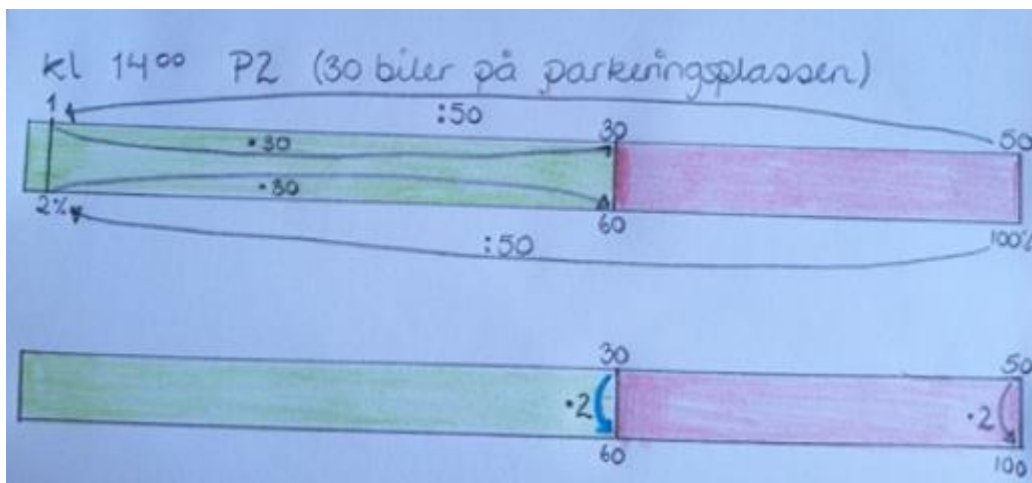 kl 14⁰⁰ P2 (30 biler på parkeringsplassen)
:50
1 30 50
·30
·30
2% 60 100%
:50
30 50
·2 ·2
60 100